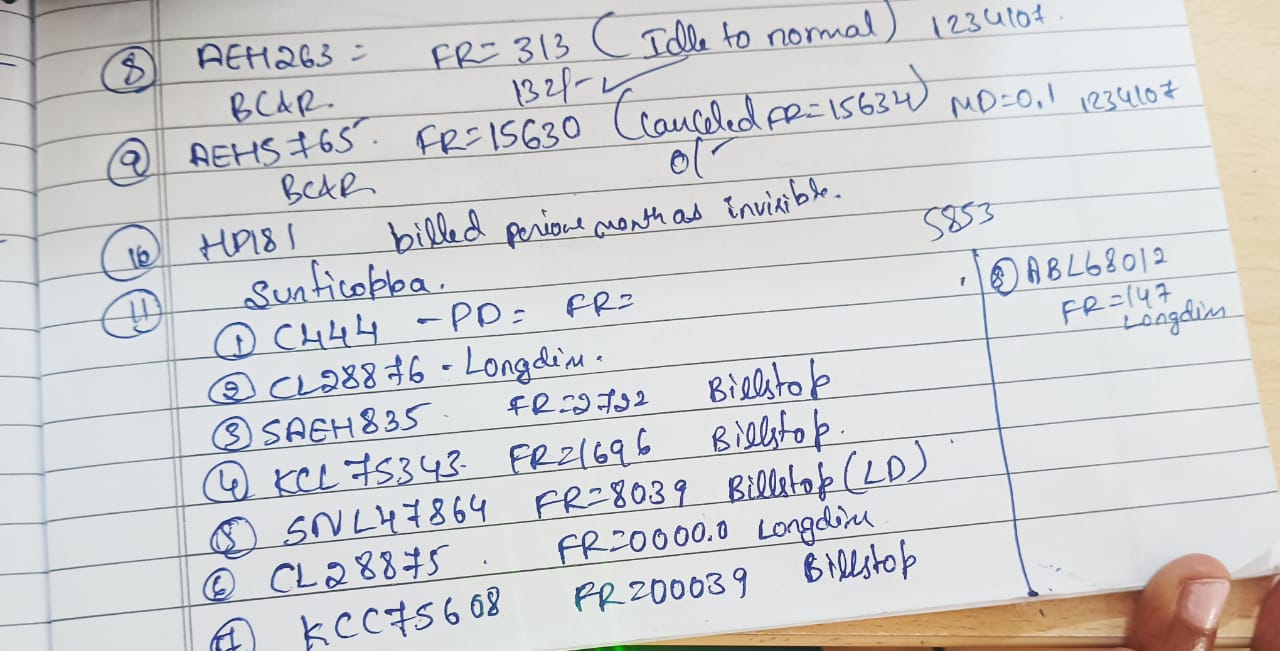 ⑧ AEH263 = FR= 313 (Idle to normal) 1234107.
BC&R. 132/-
⑨ AEH5765. FR=15630 (canceled FR=15634) MD=0.1 1234107
BC&R 0/
⑩ HP181 billed month as invisible.
5853
⑪ Sunticobba.
① C444 - PD= FR=
② CL28876 - Longdim.
③ SAEH835 FR=2722 Billstop
④ KCL75343. FR=1696 Billstop.
⑤ SNL47864 FR=8039 Billstop (LD)
⑥ CL28875. FR=0000.0 Longdim
⑦ KCC75608 FR=00039 Billstop
⑧ ABL68012
FR=147
Longdim